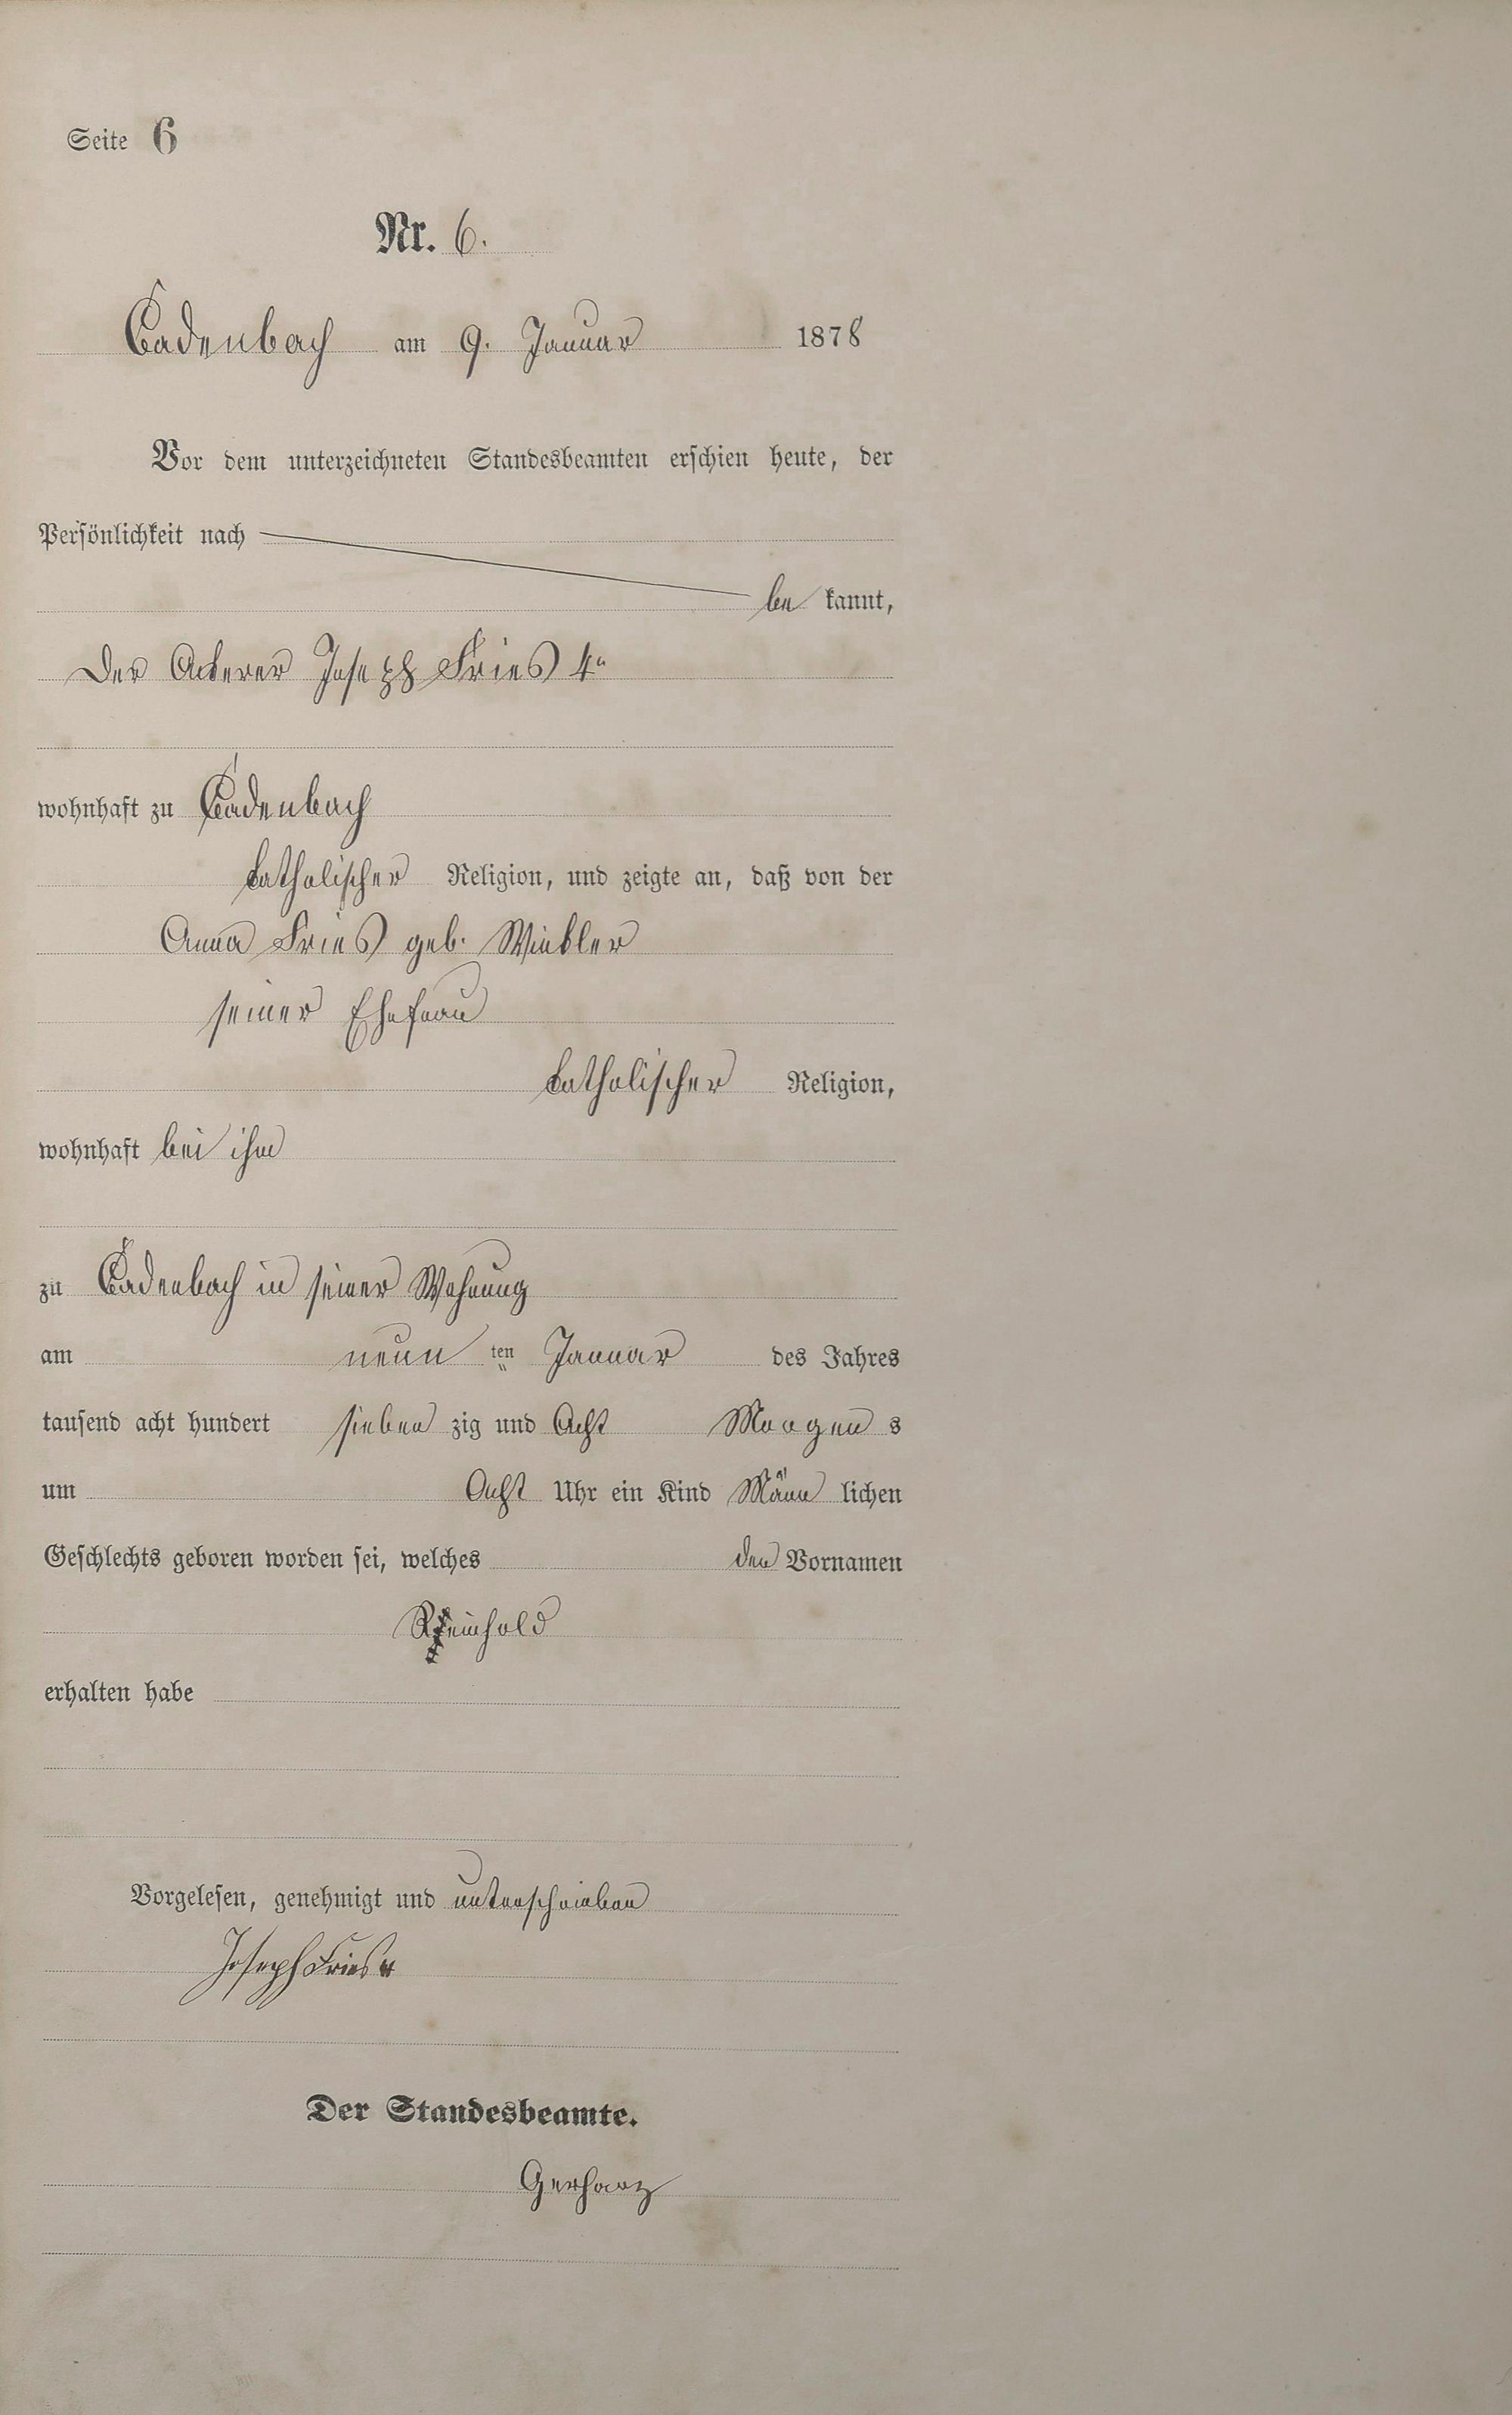 Seite 6
Nr. 6.
Cadenbach am 9. Januar 1878
Vor dem unterzeichneten Standesbeamten erschien heute, der
Persönlichkeit nach
be kannt,
Der Ackerer Joseph Fries 4r
wohnhaft zu Cadenbach
katholischer Religion, und zeigte an, daß von der
Anna Fries geb. Winkler
seiner Ehefrau
katholischer Religion,
wohnhaft bei ihm
zu Cadenbach in seiner Wohnung
am neun ten Januar des Jahres
tausend acht hundert sieben zig und Acht Morgen s
um Acht Uhr ein Kind Männ lichen
Geschlechts geboren worden sei, welches den Vornamen
Reinhold
erhalten habe
Vorgelesen, genehmigt und unterschrieben
Joseph Fries
Der Standesbeamte.
Gerharz